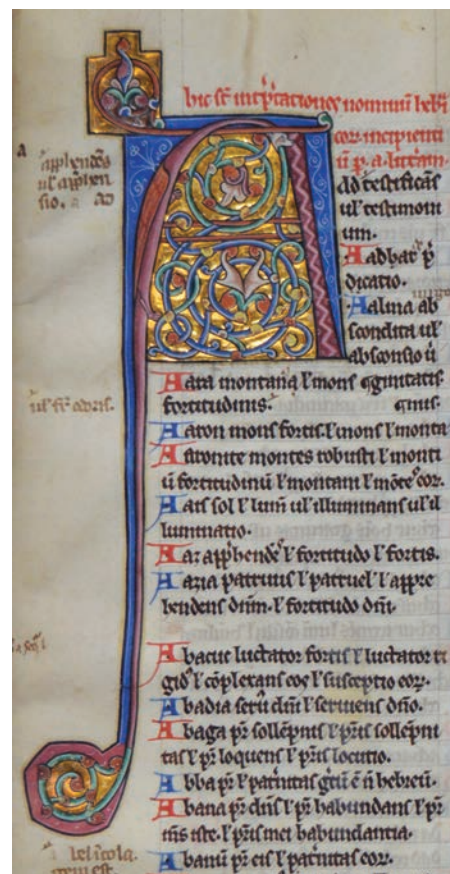 hic st̄ int̄p̄tationes nominū heb̄i
cor. incipienti
ū p̄. a. litt̄am.
Ad testificās
ul' testimoni
um.
Aadbar p̄
dicatio.
Aalma ab
scondita ul'
absconsio
apphendēs
ul' apphen
sio.
uirgo
Aara montana l' mons
fortitudinis.
Aaron mons fortis. l' mons l' monta
Aaronite montes robusti l' monti
ū fortitudinū l' montani l' mōtes eoꝝ.
Aais sol l' lum̄ ul' illuminans ul' il
luminatio.
Aar app̄hendēs l' fortitudo l' fortis.
Aaria patruus l' patruel' l' appre
hendens dn̄m. l' fortitudo dn̄i.
Abacuc luctator fortis l' luctator ri
gid' l' cōplexans eos l' susceptio eoꝝ.
Abadia seru' dn̄i l' seruiens dn̄o.
Abaga pr̄ sollēpnis l' pr̄is sollēpni
tas l' pr̄ loquens l' pr̄is locutio.
Abba pr̄ l' pat̄nitas
Abana pr̄ dn̄s l' pr̄ habundans l' pr̄
m̄s iste. l' pr̄is mei habundantia.
Abanū pr̄ eis l' pat̄nitas eoꝝ.